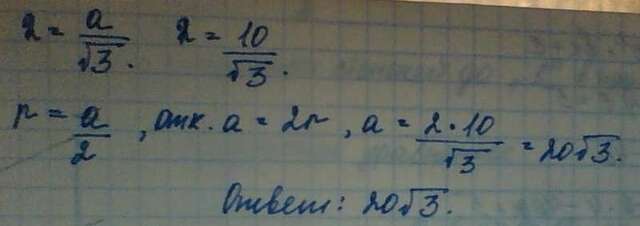 R = a/√3. R = 10/√3.
r = a/2, отк. a = 2r, a = 2·10/√3 = 20√3.
Ответ: 20√3.